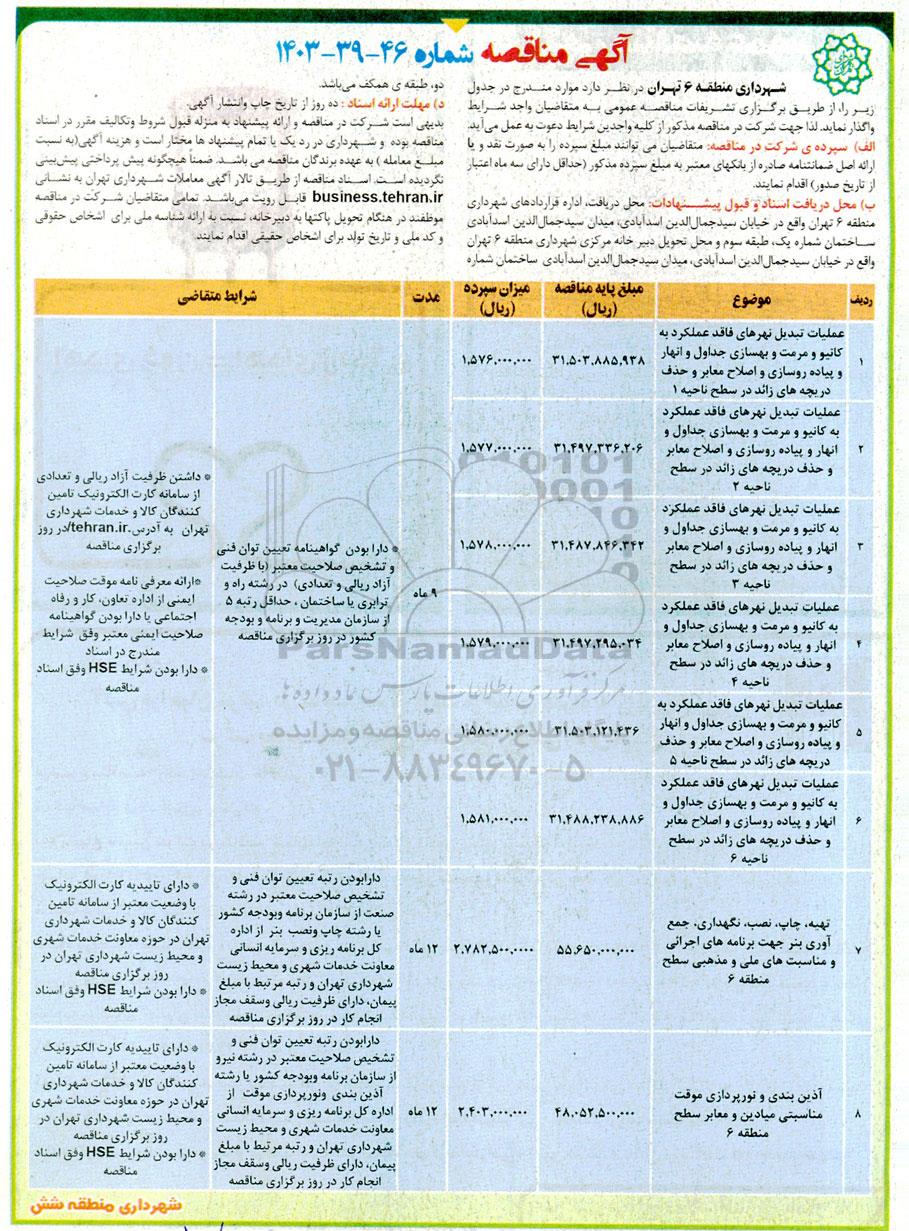 آگهی مناقصه شماره ۴۶-۳۹-۱۴۰۳
شهرداری منطقه ۶ تهران در نظر دارد موارد مندرج در جدول
زیر را، از طریق برگزاری تشریفات مناقصه عمومی به متقاضیان واجد شرایط
واگذار نماید. لذا جهت شرکت در مناقصه مذکور از کلیه واجدین شرایط دعوت به عمل می‌آید.
الف) سپرده ی شرکت در مناقصه: متقاضیان می توانند مبلغ سپرده را به صورت نقد و یا
ارائه اصل ضمانتنامه صادره از بانکهای معتبر به مبلغ سپرده مذکور (حداقل دارای سه ماه اعتبار
از تاریخ صدور) اقدام نمایند.
ب) محل دریافت اسناد و قبول پیشنهادات: محل دریافت، اداره قراردادهای شهرداری
منطقه ۶ تهران واقع در خیابان سیدجمال‌الدین اسدآبادی، میدان سیدجمال‌الدین اسدآبادی
ساختمان شماره یک، طبقه سوم و محل تحویل دبیر خانه مرکزی شهرداری منطقه ۶ تهران
واقع در خیابان سیدجمال‌الدین اسدآبادی، میدان سیدجمال‌الدین اسدآبادی ساختمان شماره
دو، طبقه ی همکف می‌باشد.
د) مهلت ارائه اسناد : ده روز از تاریخ چاپ وانتشار آگهی.
بدیهی است شرکت در مناقصه و ارائه پیشنهاد به منزله قبول شروط وتکالیف مقرر در اسناد
مناقصه بوده و شهرداری در رد یک یا تمام پیشنهاد ها مختار است و هزینه آگهی(به نسبت
مبلغ معامله ) به عهده برندگان مناقصه می باشد. ضمناً هیچگونه پیش پرداختی پیش‌بینی
نگردیده است. اسناد مناقصه از طریق تالار آگهی معاملات شهرداری تهران به نشانی
business.tehran.ir قابل رویت می‌باشد. تمامی متقاضیان شرکت در مناقصه
موظفند در هنگام تحویل پاکتها به دبیرخانه، نسبت به ارائه شناسه ملی برای اشخاص حقوقی
و کد ملی و تاریخ تولد برای اشخاص حقیقی اقدام نمایند.
ردیف موضوع مبلغ پایه مناقصه (ریال) میزان سپرده (ریال) مدت شرایط متقاضی
۱
عملیات تبدیل نهرهای فاقد عملکرد به
کانیو و مرمت و بهسازی جداول و انهار
و پیاده روسازی و اصلاح معابر و حذف
دریچه های زائد در سطح ناحیه ۱
۳۱،۵۰۳،۸۸۵،۹۳۸
۱،۵۷۶،۰۰۰،۰۰۰
۲
عملیات تبدیل نهرهای فاقد عملکرد
به کانیو و مرمت و بهسازی جداول و
انهار و پیاده روسازی و اصلاح معابر
و حذف دریچه های زائد در سطح
ناحیه ۲
۳۱،۴۹۷،۳۳۶،۲۰۶
۱،۵۷۷،۰۰۰،۰۰۰
۳
عملیات تبدیل نهرهای فاقد عملکرد
به کانیو و مرمت و بهسازی جداول و
انهار و پیاده روسازی و اصلاح معابر
و حذف دریچه های زائد در سطح
ناحیه ۳
۳۱،۴۸۷،۸۴۶،۳۴۲
۱،۵۷۸،۰۰۰،۰۰۰
۴
عملیات تبدیل نهرهای فاقد عملکرد
به کانیو و مرمت و بهسازی جداول و
انهار و پیاده روسازی و اصلاح معابر
و حذف دریچه های زائد در سطح
ناحیه ۴
۳۱،۴۹۷،۲۹۵،۰۳۴
۱،۵۷۹،۰۰۰،۰۰۰
۵
عملیات تبدیل نهرهای فاقد عملکرد به
کانیو و مرمت و بهسازی جداول و انهار
و پیاده روسازی و اصلاح معابر و حذف
دریچه های زائد در سطح ناحیه ۵
۳۱،۵۰۳،۱۲۱،۴۳۶
۱،۵۸۰،۰۰۰،۰۰۰
۶
عملیات تبدیل نهرهای فاقد عملکرد
به کانیو و مرمت و بهسازی جداول و
انهار و پیاده روسازی و اصلاح معابر
و حذف دریچه های زائد در سطح
ناحیه ۶
۳۱،۴۸۸،۲۳۸،۸۸۶
۱،۵۸۱،۰۰۰،۰۰۰
۹ ماه
* دارا بودن گواهینامه تعیین توان فنی
و تشخیص صلاحیت معتبر (با ظرفیت
آزاد ریالی و تعدادی) در رشته راه و
ترابری یا ساختمان ، حداقل رتبه ۵
از سازمان مدیریت و برنامه و بودجه
کشور در روز برگزاری مناقصه
* داشتن ظرفیت آزاد ریالی و تعدادی
از سامانه کارت الکترونیک تامین
کنندگان کالا و خدمات شهرداری
تهران به آدرس.tehran.ir/در روز
برگزاری مناقصه
*ارائه معرفی نامه موقت صلاحیت
ایمنی از اداره تعاون، کار و رفاه
اجتماعی یا دارا بودن گواهینامه
صلاحیت ایمنی معتبر وفق شرایط
مندرج در اسناد
* دارا بودن شرایط HSE وفق اسناد
مناقصه
۷
تهیه، چاپ، نصب، نگهداری، جمع
آوری بنر جهت برنامه های اجرائی
و مناسبت های ملی و مذهبی سطح
منطقه ۶
۵۵،۶۵۰،۰۰۰،۰۰۰
۲،۷۸۲،۵۰۰،۰۰۰۰
۱۲ ماه
دارابودن رتبه تعیین توان فنی و
تشخیص صلاحیت معتبر در رشته
صنعت از سازمان برنامه وبودجه کشور
یا رشته چاپ ونصب بنر از اداره
کل برنامه ریزی و سرمایه انسانی
معاونت خدمات شهری و محیط زیست
شهرداری تهران و رتبه مرتبط با مبلغ
پیمان، دارای ظرفیت ریالی وسقف مجاز
انجام کار در روز برگزاری مناقصه
* دارای تاییدیه کارت الکترونیک
با وضعیت معتبر از سامانه تامین
کنندگان کالا و خدمات شهرداری
تهران در حوزه معاونت خدمات شهری
و محیط زیست شهرداری تهران در
روز برگزاری مناقصه
* دارا بودن شرایط HSE وفق اسناد
مناقصه
۸
آذین بندی و نورپردازی موقت
مناسبتی میادین و معابر سطح
منطقه ۶
۴۸،۰۵۲،۵۰۰،۰۰۰
۲،۴۰۳،۰۰۰،۰۰۰
۱۲ ماه
دارابودن رتبه تعیین توان فنی و
تشخیص صلاحیت معتبر در رشته نیرو
از سازمان برنامه وبودجه کشور یا رشته
آذین بندی ونورپردازی موقت از
اداره کل برنامه ریزی و سرمایه انسانی
معاونت خدمات شهری و محیط زیست
شهرداری تهران و رتبه مرتبط با مبلغ
پیمان، دارای ظرفیت ریالی وسقف مجاز
انجام کار در روز برگزاری مناقصه
* دارای تاییدیه کارت الکترونیک
با وضعیت معتبر از سامانه تامین
کنندگان کالا و خدمات شهرداری
تهران در حوزه معاونت خدمات شهری
و محیط زیست شهرداری تهران در
روز برگزاری مناقصه
* دارا بودن شرایط HSE وفق اسناد
مناقصه
شهرداری منطقه شش
ParsNamadData
مرکز فرآوری اطلاعات پارس نماد داده ها
پایگاه اطلاع رسانی مناقصه و مزایده
۰۲۱-۸۸۳۴۹۶۷۰-۵